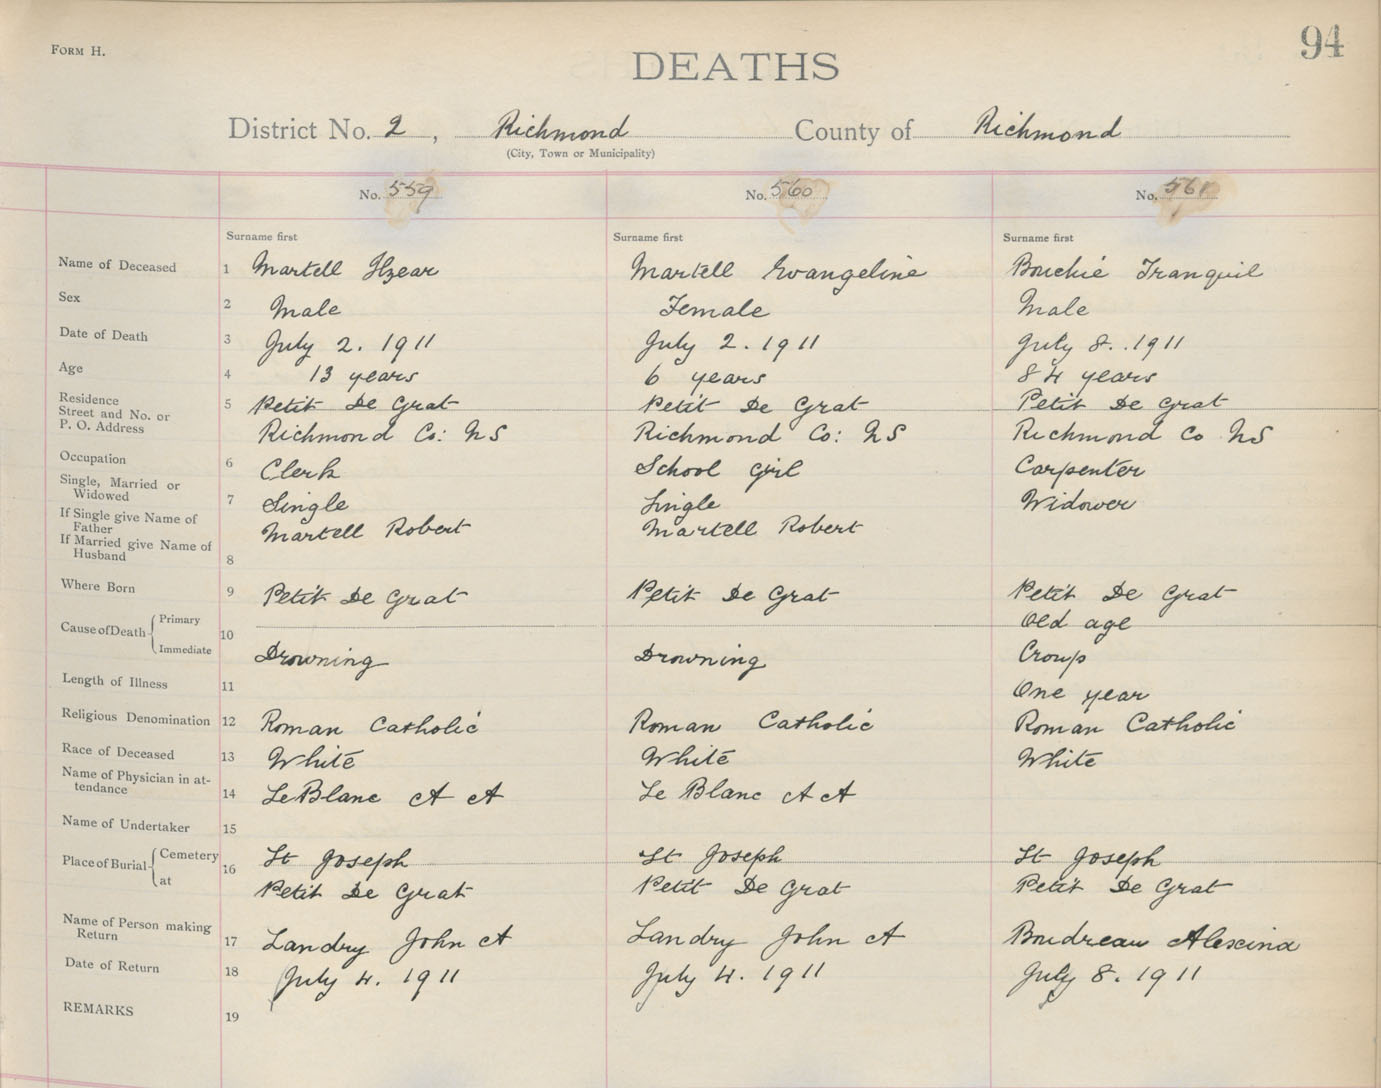 FORM H.
94
DEATHS
District No. 2, Richmond County of Richmond
(City, Town or Municipality)
No. 559 No. 560 No. 561
Surname first Surname first Surname first
Name of Deceased 1 Martell Elzear Martell Evangeline Bouchie Tranquil
Sex 2 Male Female Male
Date of Death 3 July 2. 1911 July 2. 1911 July 8. 1911
Age 4 13 years 6 years 84 years
Residence Street and No. or P. O. Address 5 Petit De Grat Petit De Grat Petit De Grat
Richmond Co: NS Richmond Co: NS Richmond Co NS
Occupation 6 Clerk School girl Carpenter
Single, Married or Widowed 7 Single Single Widower
If Single give Name of Father Martell Robert Martell Robert
If Married give Name of Husband 8
Where Born 9 Petit De Grat Petit De Grat Petit De Grat
Cause of Death 10 Primary Old age
Immediate Drowning Drowning Croup
Length of Illness 11 One year
Religious Denomination 12 Roman Catholic Roman Catholic Roman Catholic
Race of Deceased 13 White White White
Name of Physician in attendance 14 LeBlanc A A Le Blanc A A
Name of Undertaker 15
Place of Burial 16 Cemetery St Joseph St Joseph St Joseph
at Petit De Grat Petit De Grat Petit De Grat
Name of Person making Return 17 Landry John A Landry John A Boudreau Alexina
Date of Return 18 July 4. 1911 July 4. 1911 July 8. 1911
REMARKS 19